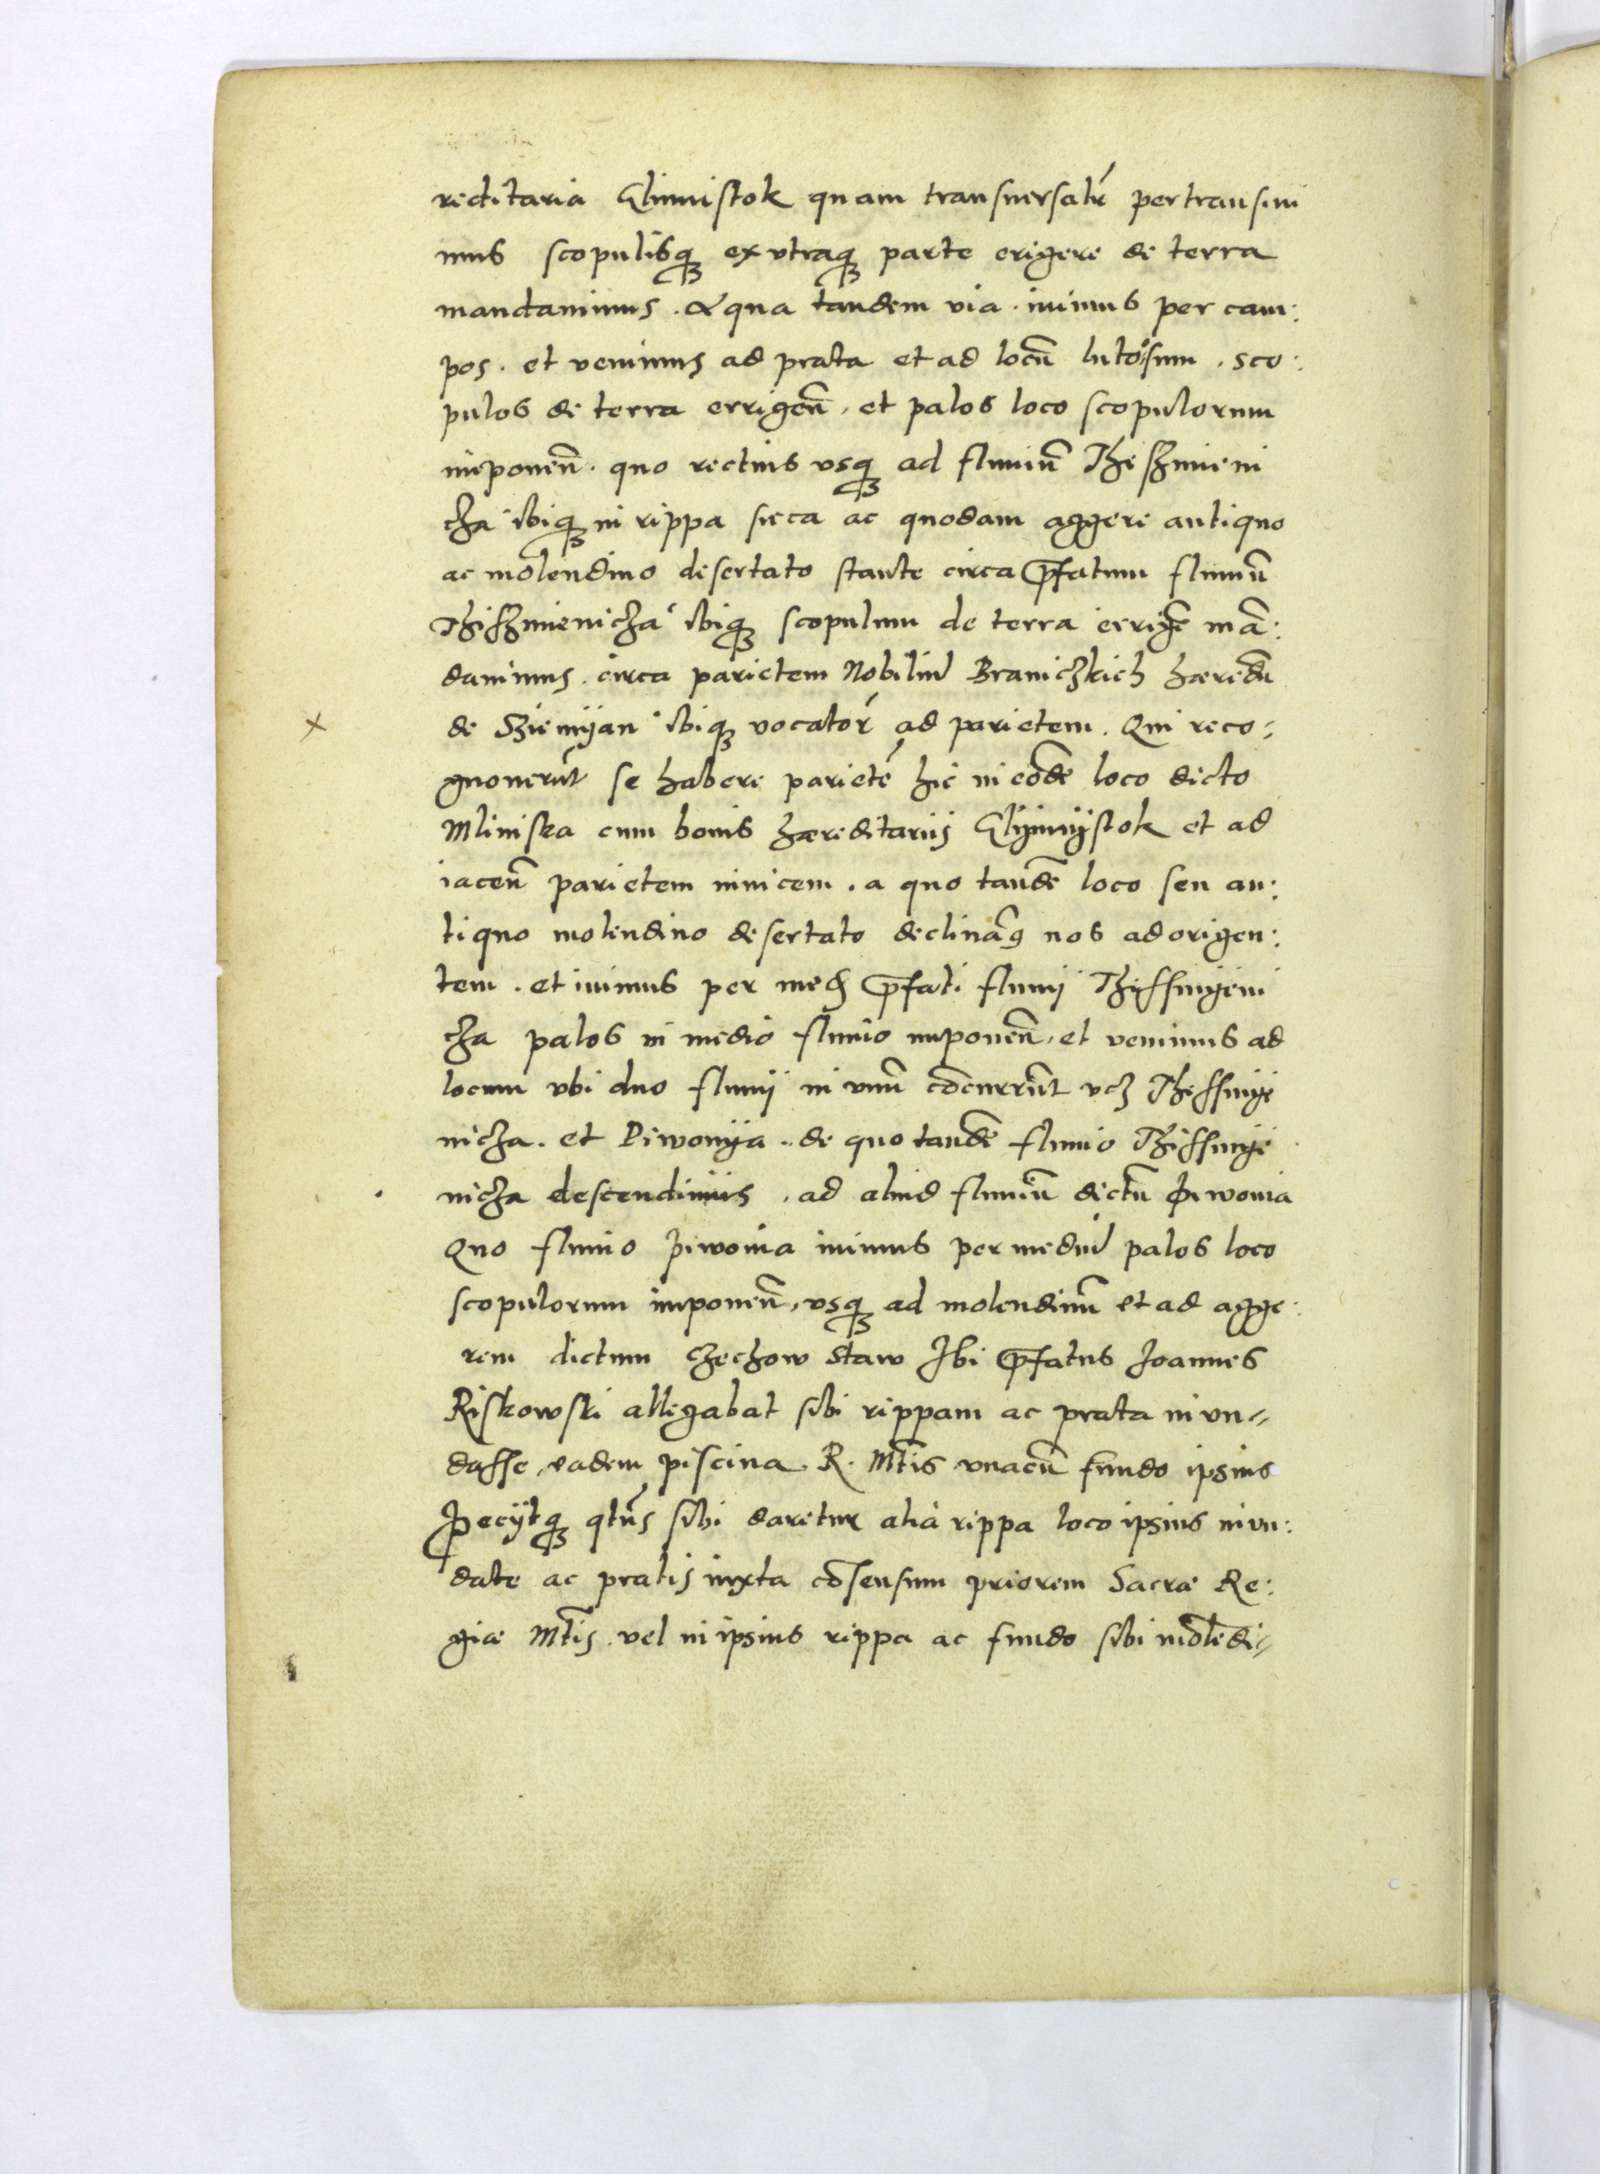 reditaria Glinnistok quam transuersalr̃ pertransiui
mus scopulisqꝫ ex vtraqꝫ parte erigere de terra
mandauimus . & qua tandem via . iuimus per cam:
pos . et venimus ad prata et ad locũ lutosum . sco:
pulos de terra errigeñ . et palos loco scopulorum
imponeñ . quo rectius vsqꝫ ad fluuiũ Theszmieni
cza ibiqꝫ in rippa sicca ac quodam aggere antiquo
ac molendino desertato stante circa p̃fatum fluuiũ
Thiszmienicza ibiqꝫ scopulum de terra errigẽ mã:
dauimus . circa parietem Nobiliũ Braniczkich hæredũ
de Sziemyan ibiqꝫ vocator̃ ad parietem . Qui reco-
gnouerũt se habere parietẽ hic in eodẽ loco dicto
Mliniska cum bonis hæreditariis Glijnnijstok et ad
iaceñ parietem inuicem . a quo tandẽ loco seu an:
tiquo molendino desertato declinãꝯ nos ad origen:
tem . et iuimus per med p̃fati fluuij Thissmijeni
cza palos in medio fluuio imponeñ . et venimus ad
locum vbi duo fluuij in vnũ cõcurrũt vcꝫ Thessmije
nicza . et Piwonija . de quo tandẽ fluuio Thissmije
nicza descendimus . ad aliud fluuiũ dictũ Piwonia
Quo fluuio Piwonia iuimus per mediũ palos loco
scopulorum imponeñ , vsqꝫ ad molendinũ et ad agge:
rem dictum Czechow Staw Ibi p̃fatus Joannes
Riskowski allegabat sibi rippam ac prata inun-
dasse , eadem piscina R. Mt̃is vnacũ fundo ipsius
Pecijtqꝫ qtũs sibi daretur alia rippa loco ipsius inun:
date ac pratis iuxta cõsensum priorem Sacræ Re:
giæ Mt̃is . vel in ipsius rippa ac fundo sibi molẽdi-